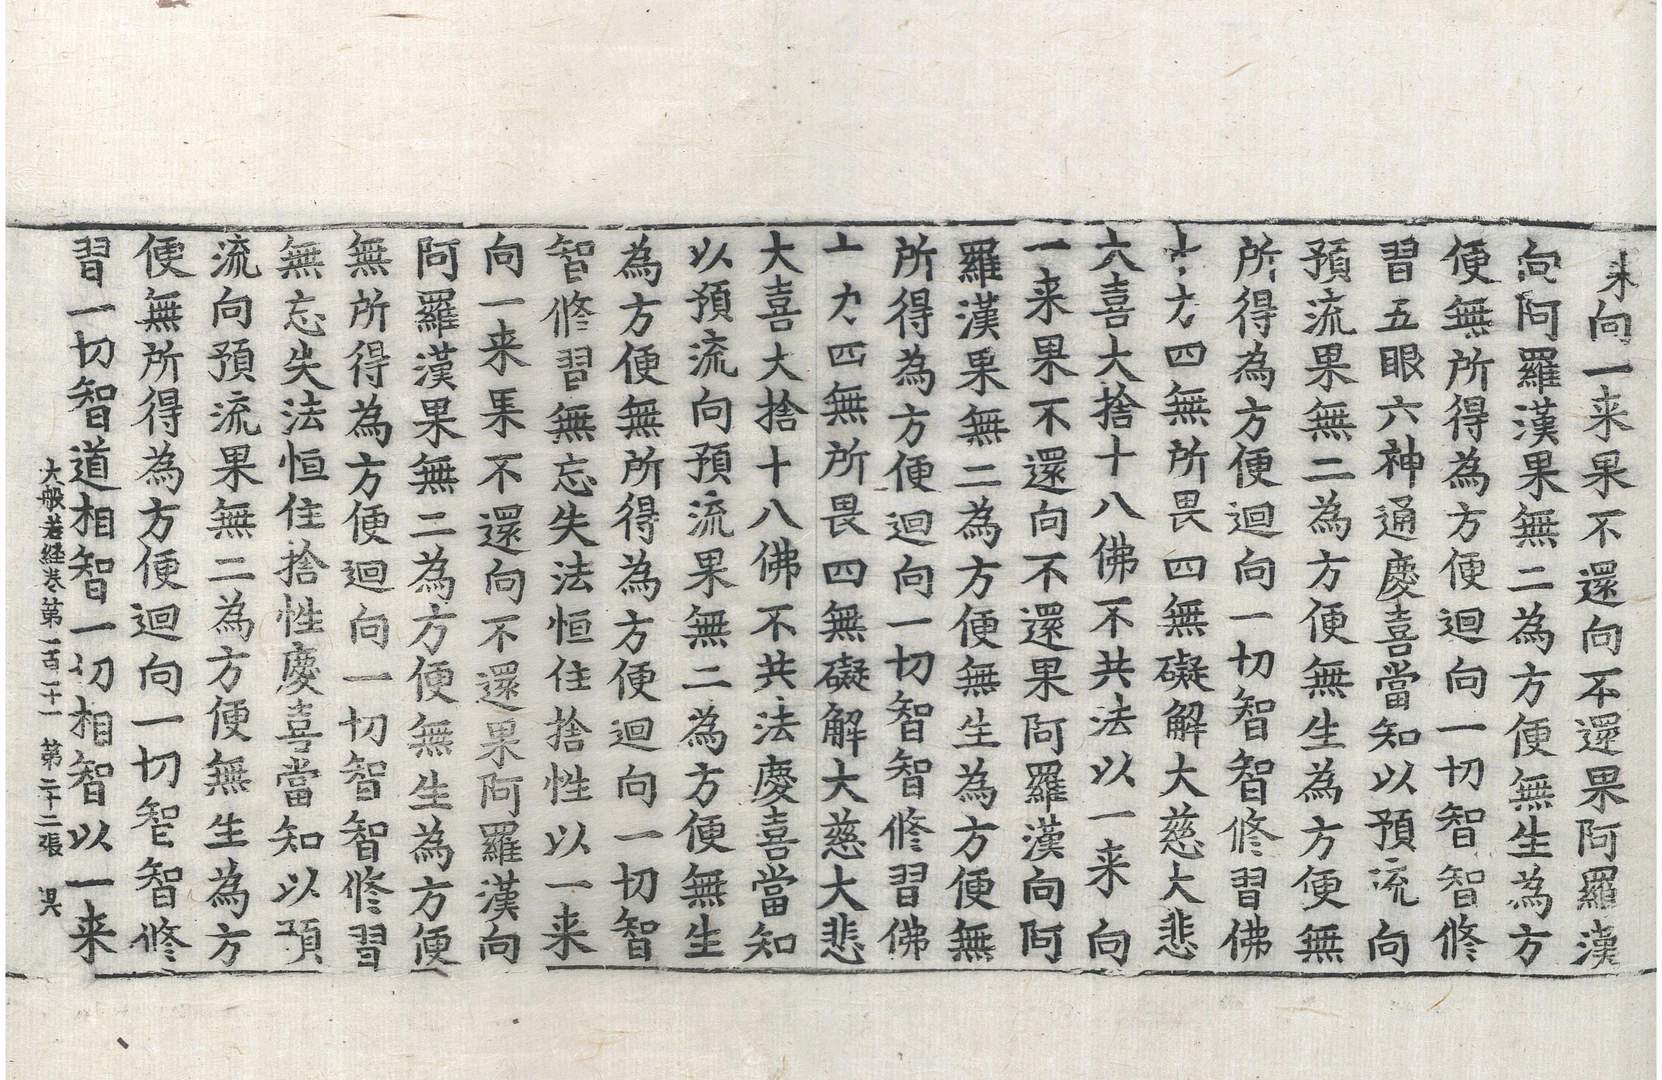 来向一来果不還向不還果阿羅漢
向阿羅漢果無二為方便無生為方
便無所得為方便迴向一切智智修
習五眼六神通慶喜當知以預流向
預流果無二為方便無生為方便無
所得為方便迴向一切智智修習佛
十力四無所畏四無礙解大慈大悲
大喜大捨十八佛不共法以一来向
一来果不還向不還果阿羅漢向阿
羅漢果無二為方便無生為方便無
所得為方便迴向一切智智修習佛
十力四無所畏四無礙解大慈大悲
大喜大捨十八佛不共法慶喜當知
以預流向預流果無二為方便無生
為方便無所得為方便迴向一切智
智修習無忘失法恒住捨性以一来
向一来果不還向不還果阿羅漢向
阿羅漢果無二為方便無生為方便
無所得為方便迴向一切智智修習
無忘失法恒住捨性慶喜當知以預
流向預流果無二為方便無生為方
便無所得為方便迴向一切智智修
習一切智道相智一切相智以一来
大般若經卷第一百二十一 第二十二張 昃